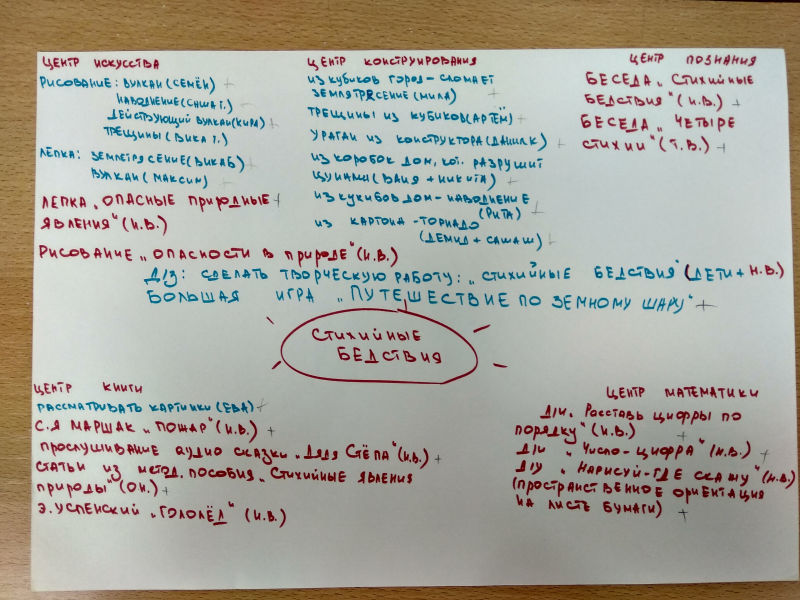 ЦЕНТР ИСКУССТВА
РИСОВАНИЕ: ВУЛКАН (СЕМЁН) +
НАВОДНЕНИЕ (САША Т.) +
ДЕЙСТВУЮЩИЙ ВУЛКАН (КИРА) +
ТРЕЩИНЫ (ВИКА Т.) +
ЛЕПКА: ЗЕМЛЕТРЯСЕНИЕ (ВИКА Б) +
ВУЛКАН (МАКСИМ) +
ЛЕПКА „ОПАСНЫЕ ПРИРОДНЫЕ +
ЯВЛЕНИЯ" (Н.В.)
РИСОВАНИЕ „ОПАСНОСТИ В ПРИРОДЕ" (Н.В.)
ЦЕНТР КОНСТРУИРОВАНИЯ
ИЗ КУБИКОВ ГОРОД - СЛОМАЕТ
ЗЕМЛЕТРЯСЕНИЕ (МИЛА) +
ТРЕЩИНЫ ИЗ КУБИКОВ (АРТЁМ) +
УРАГАН ИЗ КОНСТРУКТОРА (ДАНИЛ К) +
ИЗ КОРОБОК ДОМ, КОТ. РАЗРУШИТ
ЦУНАМИ (ВАНЯ + НИКИТА) +
ИЗ КУКИБОВ ДОМ - НАВОДНЕНИЕ
(РИТА) +
ИЗ КАРТОНА - ТОРНАДО
(ДЕМИД + САША Ш) +
ЦЕНТР ПОЗНАНИЯ
БЕСЕДА „СТИХИЙНЫЕ
БЕДСТВИЯ" (Н.В.) +
БЕСЕДА „ЧЕТЫРЕ
СТИХИИ" (Т.В.) +
Д/З: СДЕЛАТЬ ТВОРЧЕСКУЮ РАБОТУ: „СТИХИЙНЫЕ БЕДСТВИЯ" (ДЕТИ + Н.В.)
БОЛЬШАЯ ИГРА „ПУТЕШЕСТВИЕ ПО ЗЕМНОМУ ШАРУ" +
СТИХИЙНЫЕ
БЕДСТВИЯ
ЦЕНТР КНИГИ
РАССМАТРИВАТЬ КАРТИНКИ (ЕВА) +
С.Я МАРШАК „ПОЖАР" (Н.В.) +
ПРОСЛУШИВАНИЕ АУДИО СКАЗКИ „ДЯДЯ СТЁПА" (Н.В.) +
СТАТЬИ ИЗ МЕТОД. ПОСОБИЯ „СТИХИЙНЫЕ ЯВЛЕНИЯ
ПРИРОДЫ" (О.Н.) +
Э. УСПЕНСКИЙ „ГОЛОЛЁД" (Н.В.)
ЦЕНТР МАТЕМАТИКИ
Д/И. Расставь ЦИФРЫ ПО
ПОРЯДКУ" (Н.В.) +
Д/И „ЧИСЛО - ЦИФРА" (Н.В.) +
Д/У „НАРИСУЙ - ГДЕ СКАЖУ" (Н.В.) +
(ПРОСТРАНСТВЕННОЕ ОРИЕНТАЦИЯ
НА ЛИСТЕ БУМАГИ) +